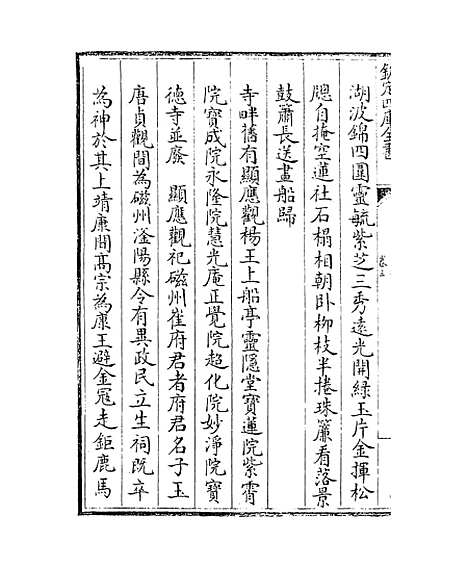 欽定四庫全書
卷三
湖波錦四圍靈毓紫芝三秀遠光開綠玉片金揮松
牕自掩空蓮社石榻相朝卧柳枝半捲珠簾看落景
鼓簫長送畫船歸
寺畔舊有顯應觀楊王上船亭靈隱堂寶蓮院紫霄
院寶成院永隆院慧光庵正覺院超化院妙淨院寶
德寺並廢 顯應觀祀磁州崔府君者府君名子玉
唐貞觀間為磁州滏陽縣令有異政民立生祠既卒
為神於其上靖康間高宗為康王避金冦走鉅鹿馬